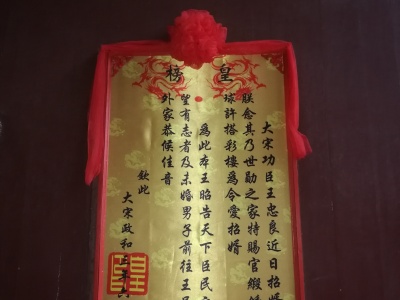 皇榜
大宋功臣王忠良近日招婿
朕念其乃世勛之家特賜官緞
球許搭彩樓爲令愛招婿
爲此本王昭告天下臣民
望有志者及未婚男子前往王
外家恭候佳音
欽此
大宋政和五年